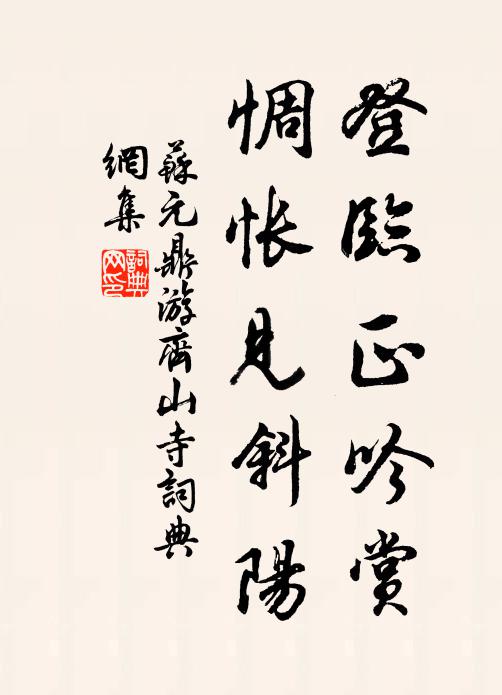 登臨正吟賞
惆悵見斜陽
蘇元鼎游齊山寺詞典
網集
詞典
网印